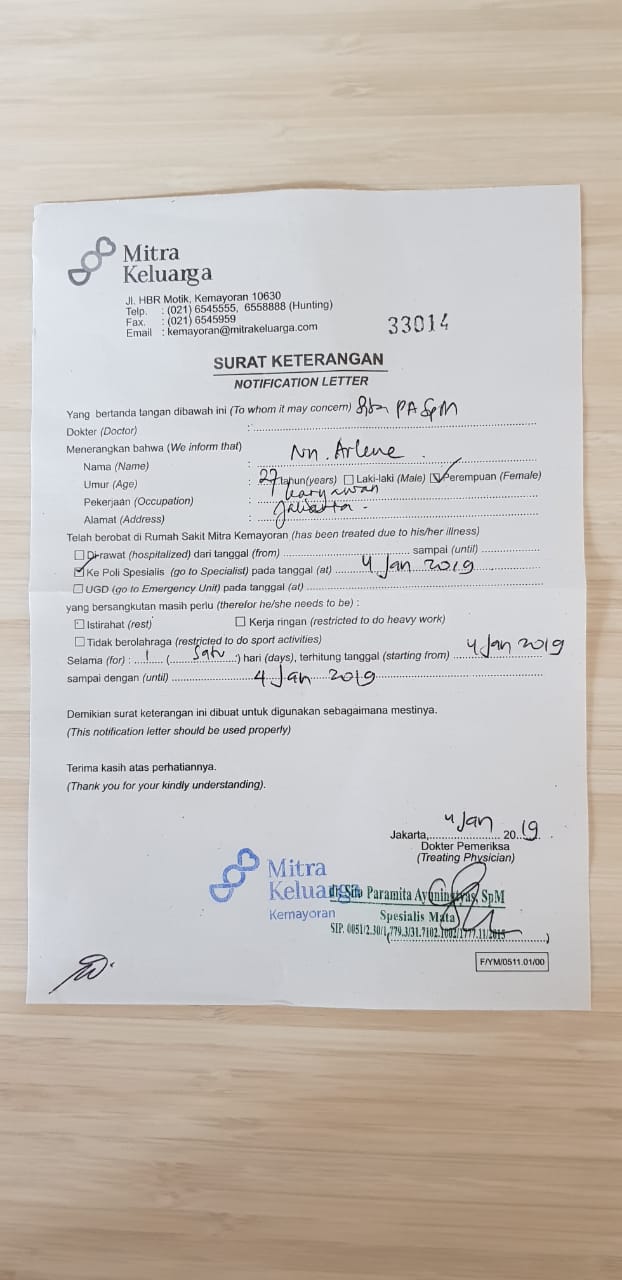 Mitra
Keluarga
Jl. HBR Motik, Kemayoran 10630
Telp. : (021) 6545555, 6558888 (Hunting)
Fax. : (021) 6545959
Email : kemayoran@mitrakeluarga.com
33014
SURAT KETERANGAN
NOTIFICATION LETTER
Yang bertanda tangan dibawah ini (To whom it may concern) PA SpM
Dokter (Doctor) :
Menerangkan bahwa (We inform that)
Nama (Name) : Nn. Arlene
Umur (Age) : 27 tahun(years) Laki-laki (Male) Perempuan (Female)
Pekerjaan (Occupation) : karyawan
Alamat (Address) : Jakarta.
Telah berobat di Rumah Sakit Mitra Kemayoran (has been treated due to his/her illness)
Dirawat (hospitalized) dari tanggal (from) sampai (until)
Ke Poli Spesialis (go to Specialist) pada tanggal (at) 4 Jan 2019
UGD (go to Emergency Unit) pada tanggal (at)
yang bersangkutan masih perlu (therefor he/she needs to be) :
Istirahat (rest) Kerja ringan (restricted to do heavy work)
Tidak berolahraga (restricted to do sport activities)
Selama (for) : 1 (Satu) hari (days), terhitung tanggal (starting from) 4 Jan 2019
sampai dengan (until) 4 Jan 2019
Demikian surat keterangan ini dibuat untuk digunakan sebagaimana mestinya.
(This notification letter should be used properly)
Terima kasih atas perhatiannya.
(Thank you for your kindly understanding).
Jakarta, 4 Jan 2019
Dokter Pemeriksa
(Treating Physician)
Mitra
Keluarga
Kemayoran
Paramita SpM
Spesialis Mata
SIP.
F/YM/0511.01/00